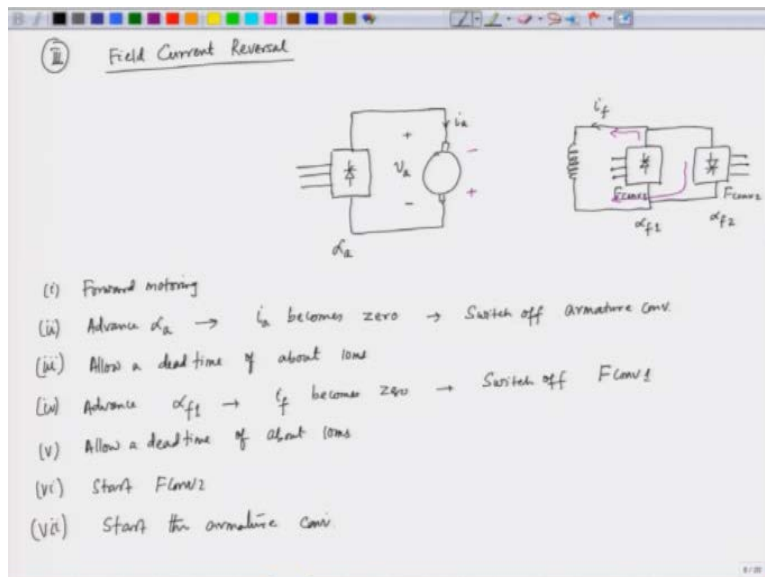 III Field Current Reversal
ia
+ Va -
- +
αa
if
Fconv1
Fconv2
αf1
αf2
(i) Forward motoring
(ii) Advance αa → ia becomes zero → Switch off armature conv.
(iii) Allow a dead time of about 10ms
(iv) Advance αf1 → if becomes zero → Switch off FConv1
(v) Allow a dead time of about 10ms
(vi) Start FConv2
(vii) Start the armature conv.
8/20